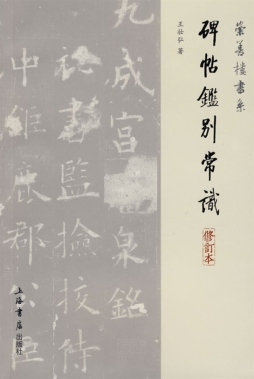 崇善樓書系
王壯弘 著
碑帖鑑别常識
修訂本
九成宫醴泉銘
祕書監撿挍侍
中鉅鹿郡公臣
上海書店
出版社